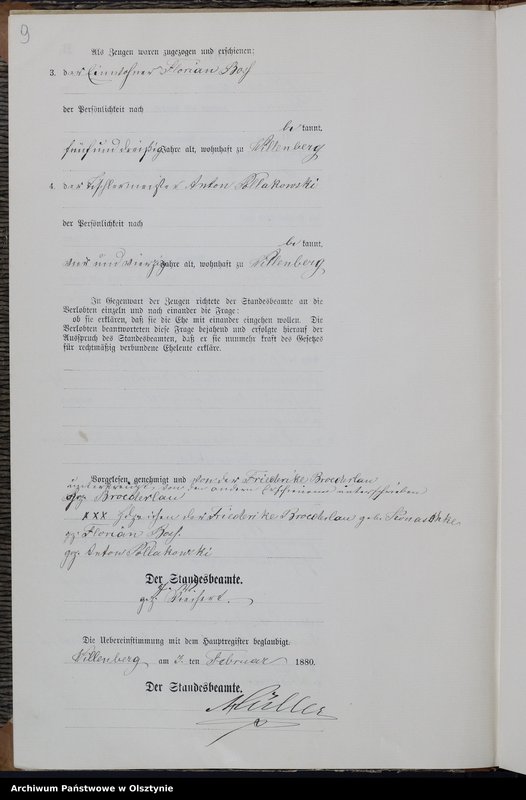 9
Als Zeugen waren zugezogen und erschienen:
3. der Einwohner Florian Bach
der Persönlichkeit nach
be kannt,
fünf und dreißig Jahre alt, wohnhaft zu Willenberg
4. der Tischlermeister Anton Pollakowski
der Persönlichkeit nach
be kannt,
vier und vierzig Jahre alt, wohnhaft zu Willenberg
In Gegenwart der Zeugen richtete der Standesbeamte an die
Verlobten einzeln und nach einander die Frage:
ob sie erklären, daß sie die Ehe mit einander eingehen wollen. Die
Verlobten beantworteten diese Frage bejahend und erfolgte hierauf der
Ausspruch des Standesbeamten, daß er sie nunmehr kraft des Gesetzes
für rechtmäßig verbundene Eheleute erkläre.
Vorgelesen, genehmigt und von der Friederike Broederlau
unterkreuzt, von den andern Erschienenen unterschrieben
gez. Broederlau
xxx Handzeichen der Friederike Broederlau geb.
gez. Florian Bach
gez. Anton Pollakowski
Der Standesbeamte.
gez.
Die Uebereinstimmung mit dem Hauptregister beglaubigt.
Willenberg am 3. ten Februar 1880.
Der Standesbeamte.
Müller
Archiwum Państwowe w Olsztynie